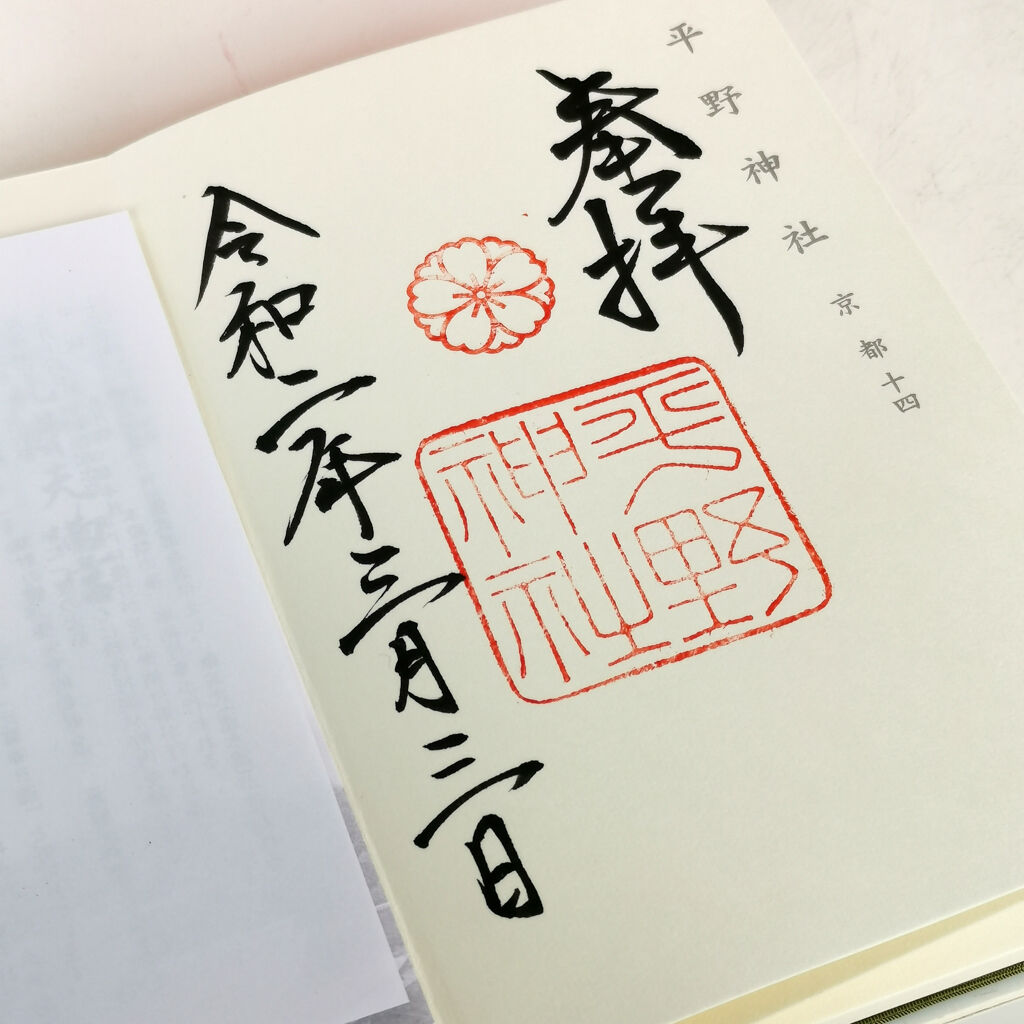 平野神社 京都十四
奉拝
平野
神社
令和二年三月三日